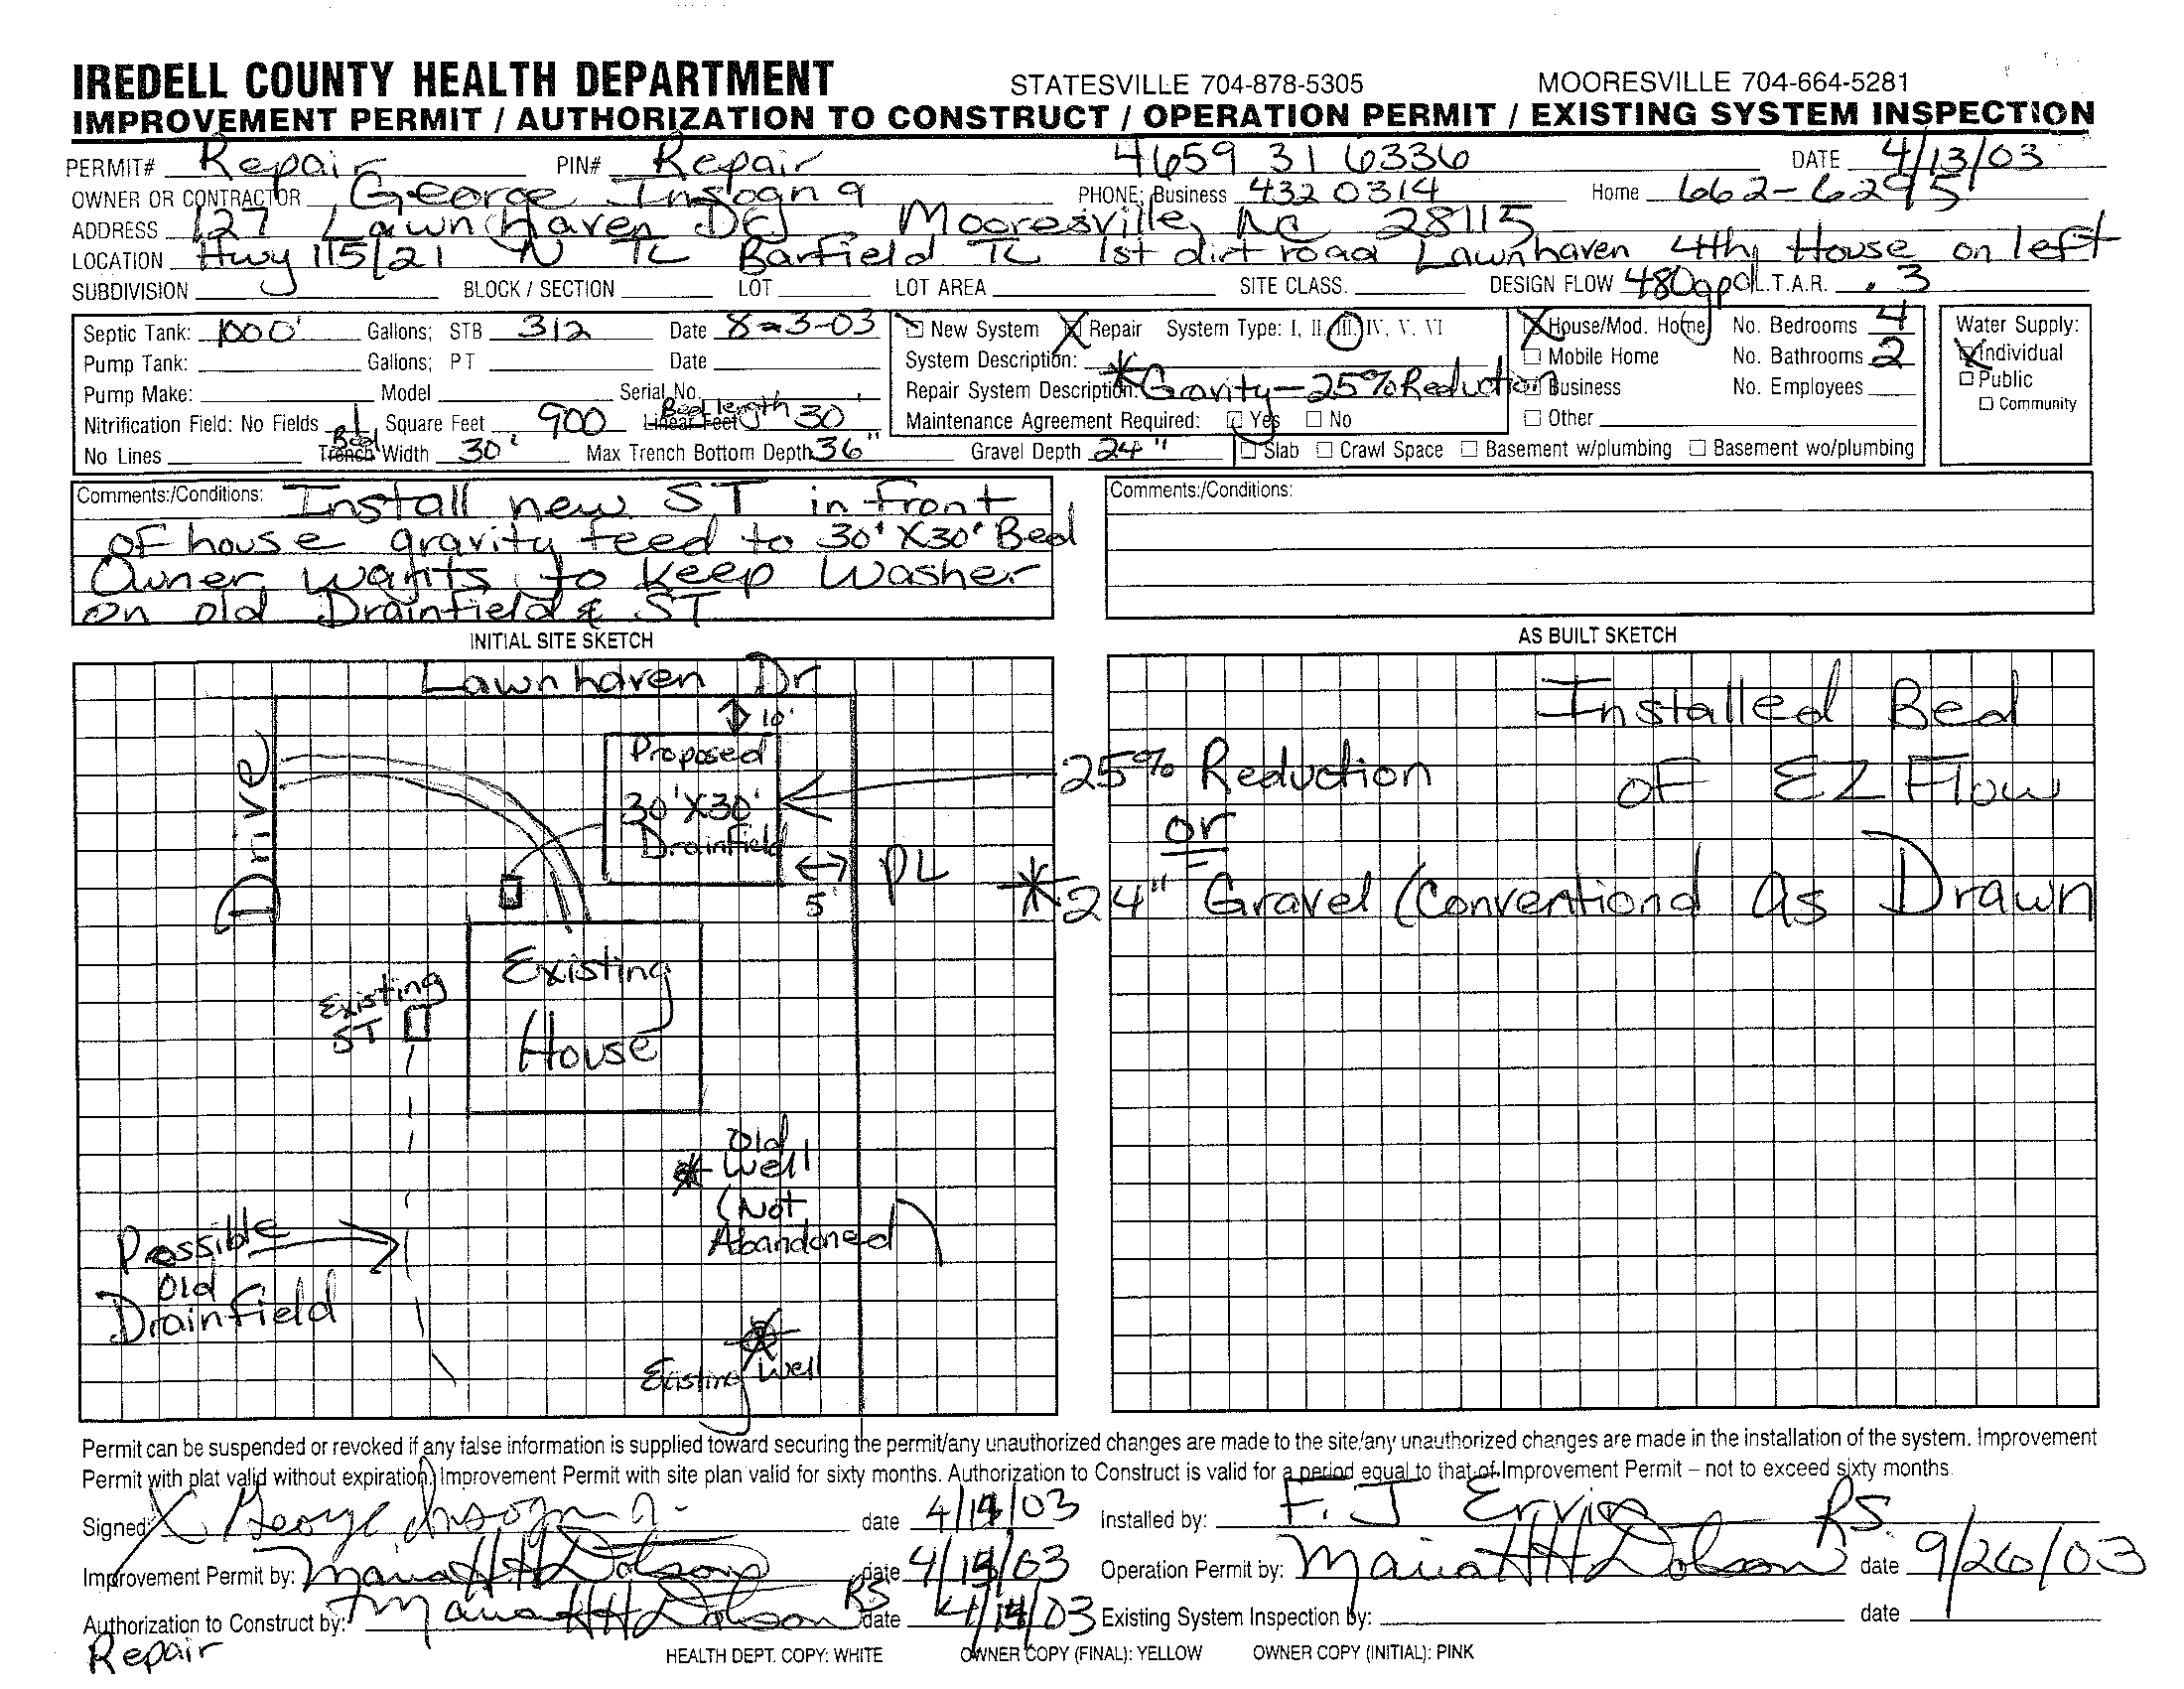 IREDELL COUNTY HEALTH DEPARTMENT STATESVILLE 704-878-5305 MOORESVILLE 704-664-5281
IMPROVEMENT PERMIT / AUTHORIZATION TO CONSTRUCT / OPERATION PERMIT / EXISTING SYSTEM INSPECTION
PERMIT# Repair PIN# Repair 4659 31 6336 DATE 4/13/03
OWNER OR CONTRACTOR George Insogna PHONE: Business 432 0314 Home 662-6295
ADDRESS 127 Lawnhaven Dr Mooresville, NC 28115
LOCATION Hwy 115/21 N TL Barfield TL 1st dirt road Lawnhaven 4th House on left
SUBDIVISION BLOCK / SECTION LOT LOT AREA SITE CLASS. DESIGN FLOW 480gpd L.T.A.R. .3
Septic Tank: 1000 Gallons; STB 312 Date 8-3-03
Pump Tank: Gallons; PT Date
Pump Make: Model Serial No.
Nitrification Field: No Fields 1 Square Feet 900 Linear Feet Bed length 30'
No Lines Trench Bed Width 30' Max Trench Bottom Depth 36" Gravel Depth 24"
New System Repair System Type: I, II, III, IV, V, VI
System Description:
Repair System Description: *Gravity-25% Reduction
Maintenance Agreement Required: Yes No
House/Mod. Home No. Bedrooms 4
Mobile Home No. Bathrooms 2
Business No. Employees
Other
Slab Crawl Space Basement w/plumbing Basement wo/plumbing
Water Supply:
Individual
Public
Community
Comments:/Conditions: Install new ST in front
of house gravity feed to 30'X30' Bed
Owner wants to keep washer
on old Drainfield & ST
Comments:/Conditions:
INITIAL SITE SKETCH
Lawnhaven Dr
10'
Drive
Proposed
30'X30'
Drainfield
5'
PL
Existing
House
Existing
ST
Old
Well
(Not
Abandoned)
Possible
Old
Drainfield
Existing Well
AS BUILT SKETCH
Installed Bed
of EZ Flow
As Drawn
25% Reduction
or
*24" Gravel (Conventional
Permit can be suspended or revoked if any false information is supplied toward securing the permit/any unauthorized changes are made to the site/any unauthorized changes are made in the installation of the system. Improvement
Permit with plat valid without expiration. Improvement Permit with site plan valid for sixty months. Authorization to Construct is valid for a period equal to that of Improvement Permit – not to exceed sixty months.
Signed: X George Insogna date 4/14/03 Installed by: F. J Ervin
Improvement Permit by: Maria H Dobson date 4/14/03 Operation Permit by: Maria H Dobson RS date 9/26/03
Authorization to Construct by: Maria H Dobson RS date 4/14/03 Existing System Inspection by: date
Repair
HEALTH DEPT. COPY: WHITE OWNER COPY (FINAL): YELLOW OWNER COPY (INITIAL): PINK